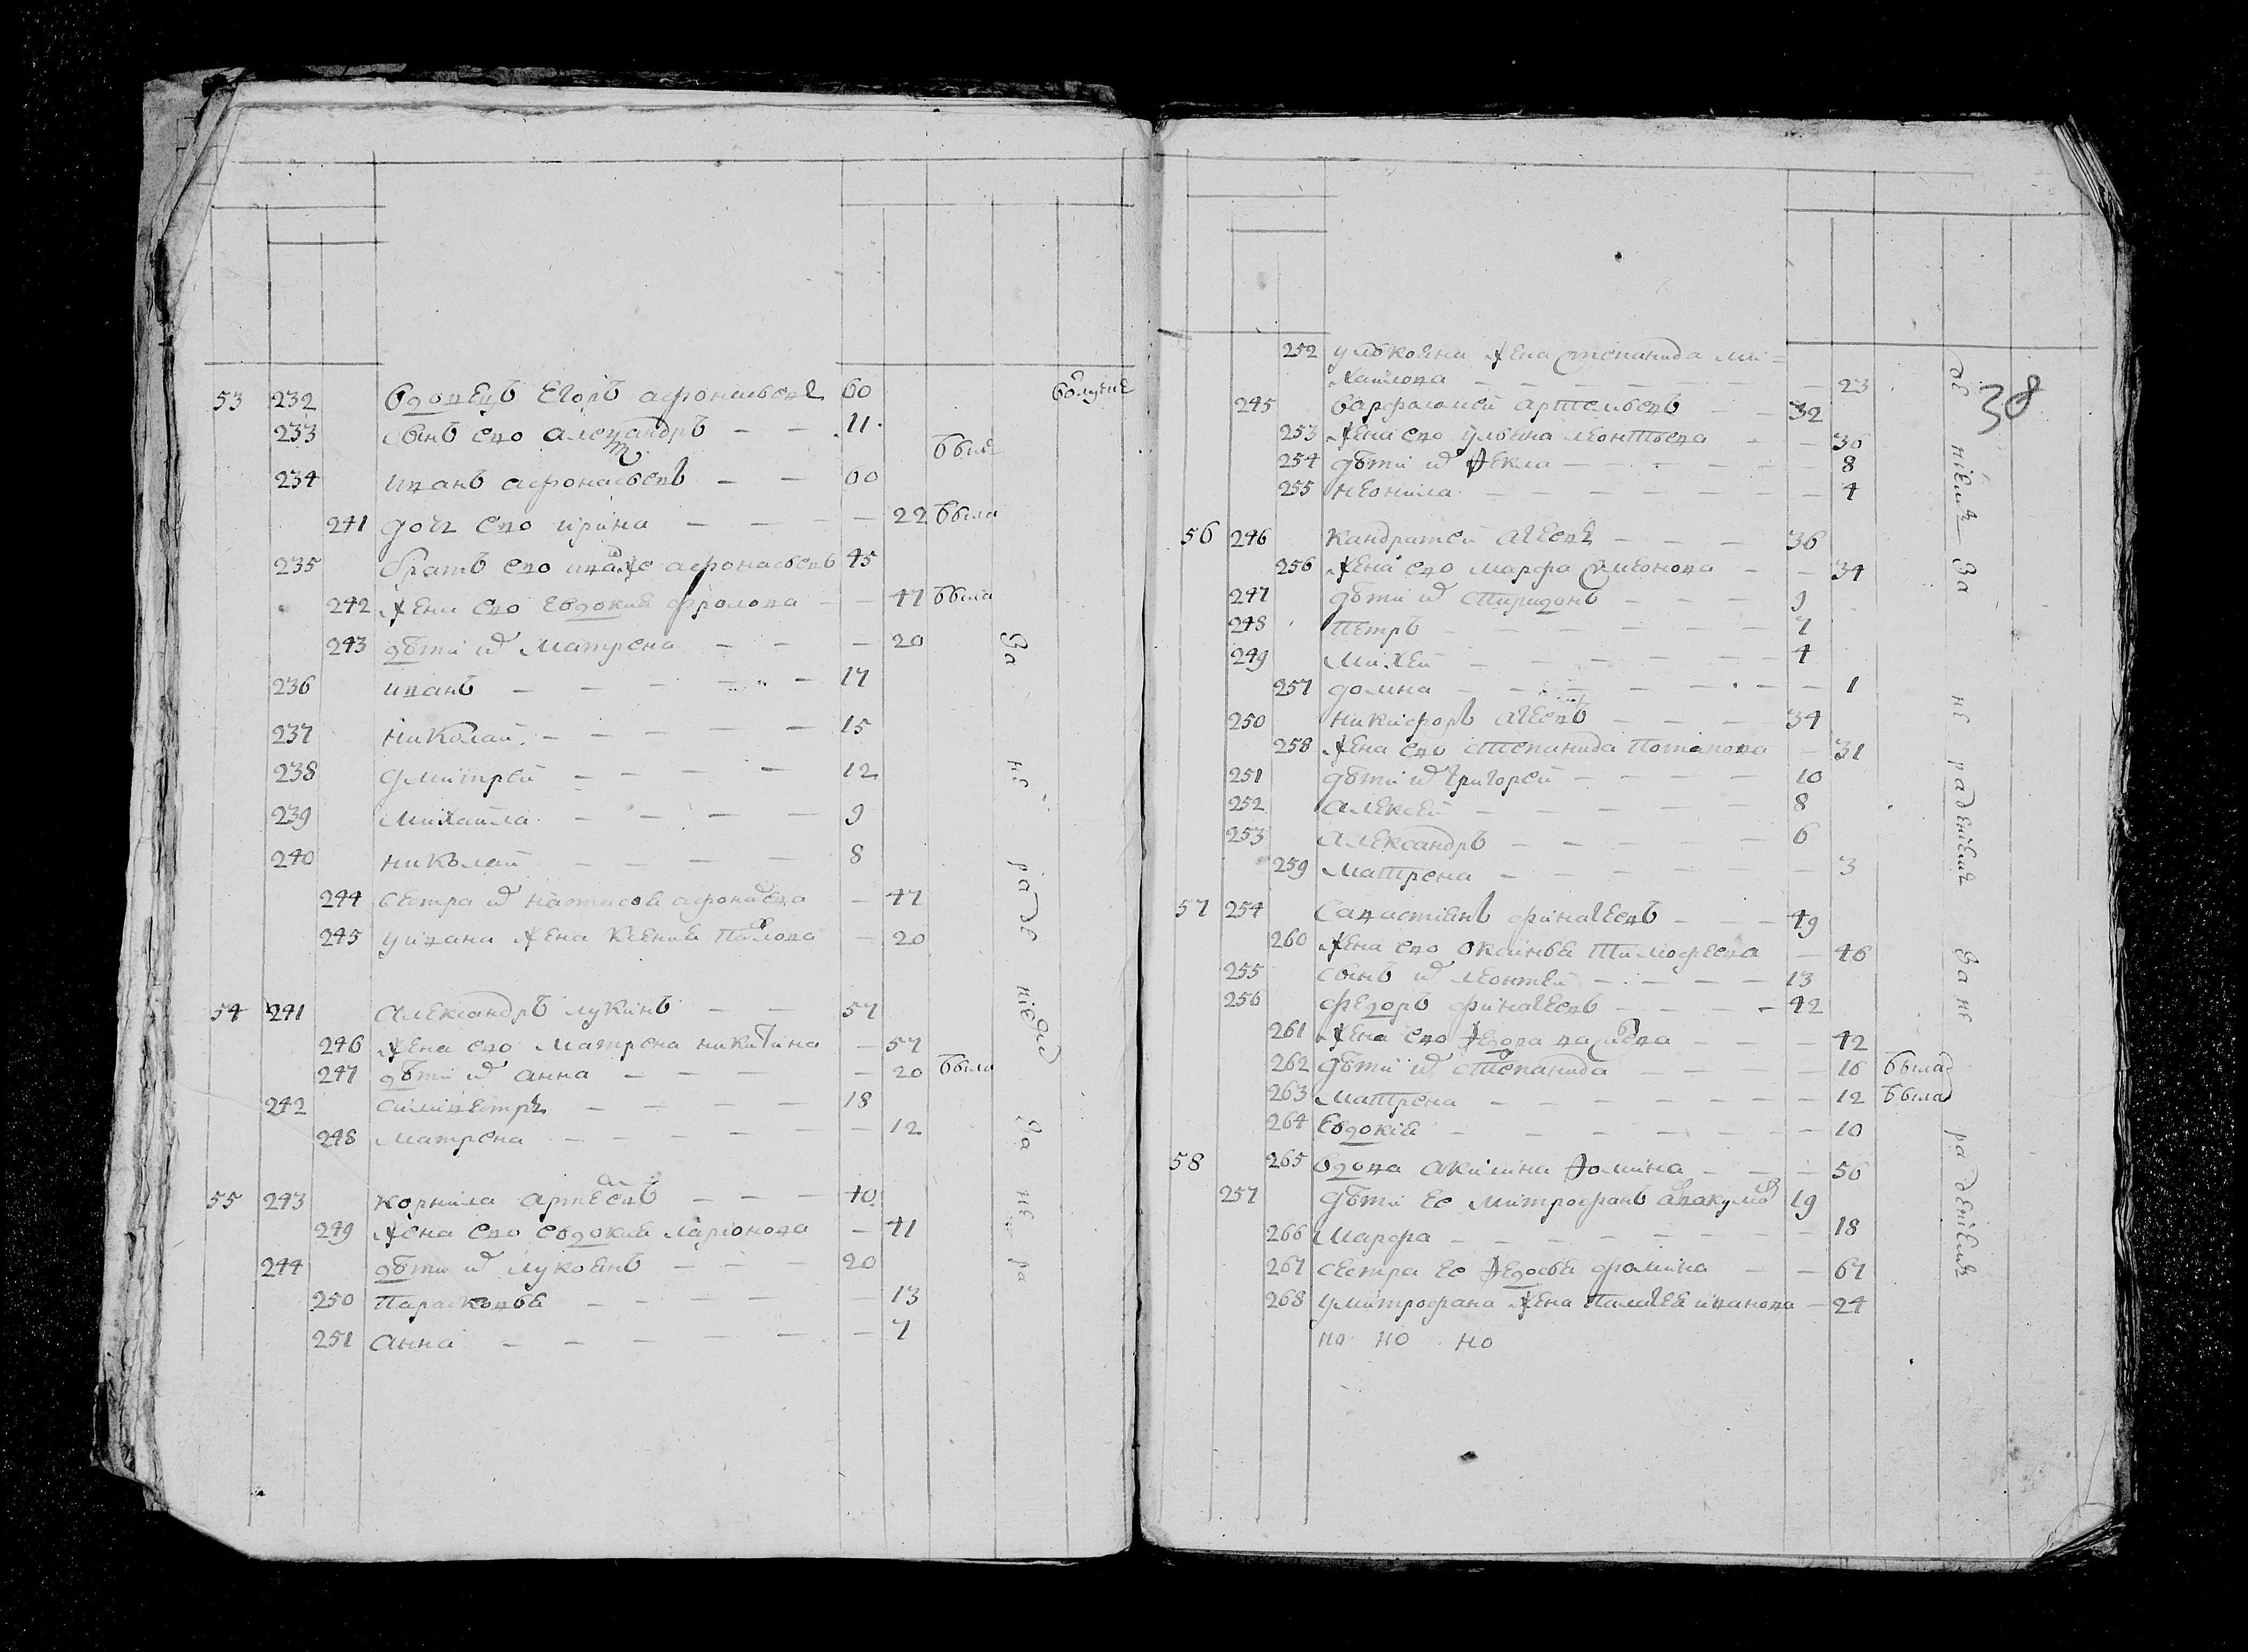 53 232 вдовецъ Егоръ афонасьевъ 60
233 сынъ ево александръ — — 11
былъ
234 иванъ афонасьевъ — — 60
241 дочь ево ирина — — — — 22 была
235 братъ ево иванъ же афонасьевъ 45
242 жена ево Евдокия фролова — — 47 была
243 дѣти их матрена — — — 20
236 иванъ — — — — — 17
237 николай — — — — — 15
238 дмитрей — — — — 12
239 михайла — — — — 9
240 николай — — — — 8
244 сестра их афонасева — 47
245 у ивана жена ксения павлова — 20
54 241 александръ лукинъ — — 57
246 жена ево матрена никитина — 57
247 дѣти их анна — — — — 20 была
242 силиверстръ — — — — 18
248 матрена — — — — — 12
55 243 корнила артемьевъ — — — 40
249 жена ево евдокия ларионова — 41
244 дѣти их лукоянъ — — — 20
250 Парасковья — — — — — 13
251 анна — — — — — — 7
За не радениемъ За не ра
38
252 у лукояна жена степанида ми=
хайлова — — — — — — 23
245 варфоломей артемьевъ — — 32
253 жена ево ульяна леонтьева — — 30
254 дѣти их Фекла — — — — — 8
255 неонила — — — — — — 4
56 246 кандратей агеевъ — — — 36
256 жена ево марфа симеонова — — 34
247 дѣти их спиридонъ — — — 9
248 Петръ — — — — — — 7
249 михей — — — — — — 4
257 домна — — — — — — — 1
250 никифоръ агеевъ — — — 34
258 жена ево степанида Потапова — 31
251 дѣти их григорей — — — — 10
252 алексей — — — — — 8
253 александръ — — — — — 6
259 матрена — — — — — — 3
57 254 савастиянъ финагеевъ — — 49
260 жена ево оксинья тимофеева — 46
255 сынъ их леонтей — — — — 13
256 федоръ финагеевъ — — — 42
261 жена ево Федора савельева — — — 42
262 дѣти их степанида — — — — 16 была
263 матрена — — — — — — — 12 была
264 Евдокия — — — — — — 10
58 265 вдова акилина Фомина — — — 56
257 дѣти ее митрофанъ авакумовъ 19
266 марфа — — — — — — — 18
267 сестра ее Федосья фомина — — 67
268 у митрофана жена Палагея иванова — 24
но но но
дениемъ За не радениемъ За не радениемъ